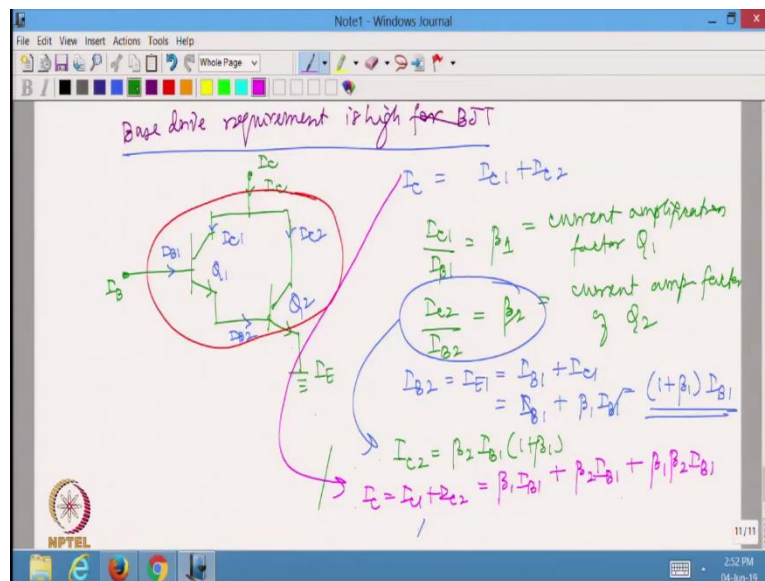 Note1 - Windows Journal
File Edit View Insert Actions Tools Help
Whole Page
B I
Base drive requirement is high for BJT
I_C
I_C
I_C = I_C1 + I_C2
I_B1 I_C1 I_C2
I_B Q1
I_B2 Q2
I_E
I_C1/I_B1 = β1 = current amplification factor Q1
I_C2/I_B2 = β2 = current amp factor of Q2
I_B2 = I_E1 = I_B1 + I_C1
= I_B1 + β1 I_B1 = (1+β1) I_B1
I_C2 = β2 I_B1 (1+β1)
I_C = I_C1 + I_C2 = β1 I_B1 + β2 I_B1 + β1 β2 I_B1
NPTEL
11/11
2:52 PM
04-Jun-19